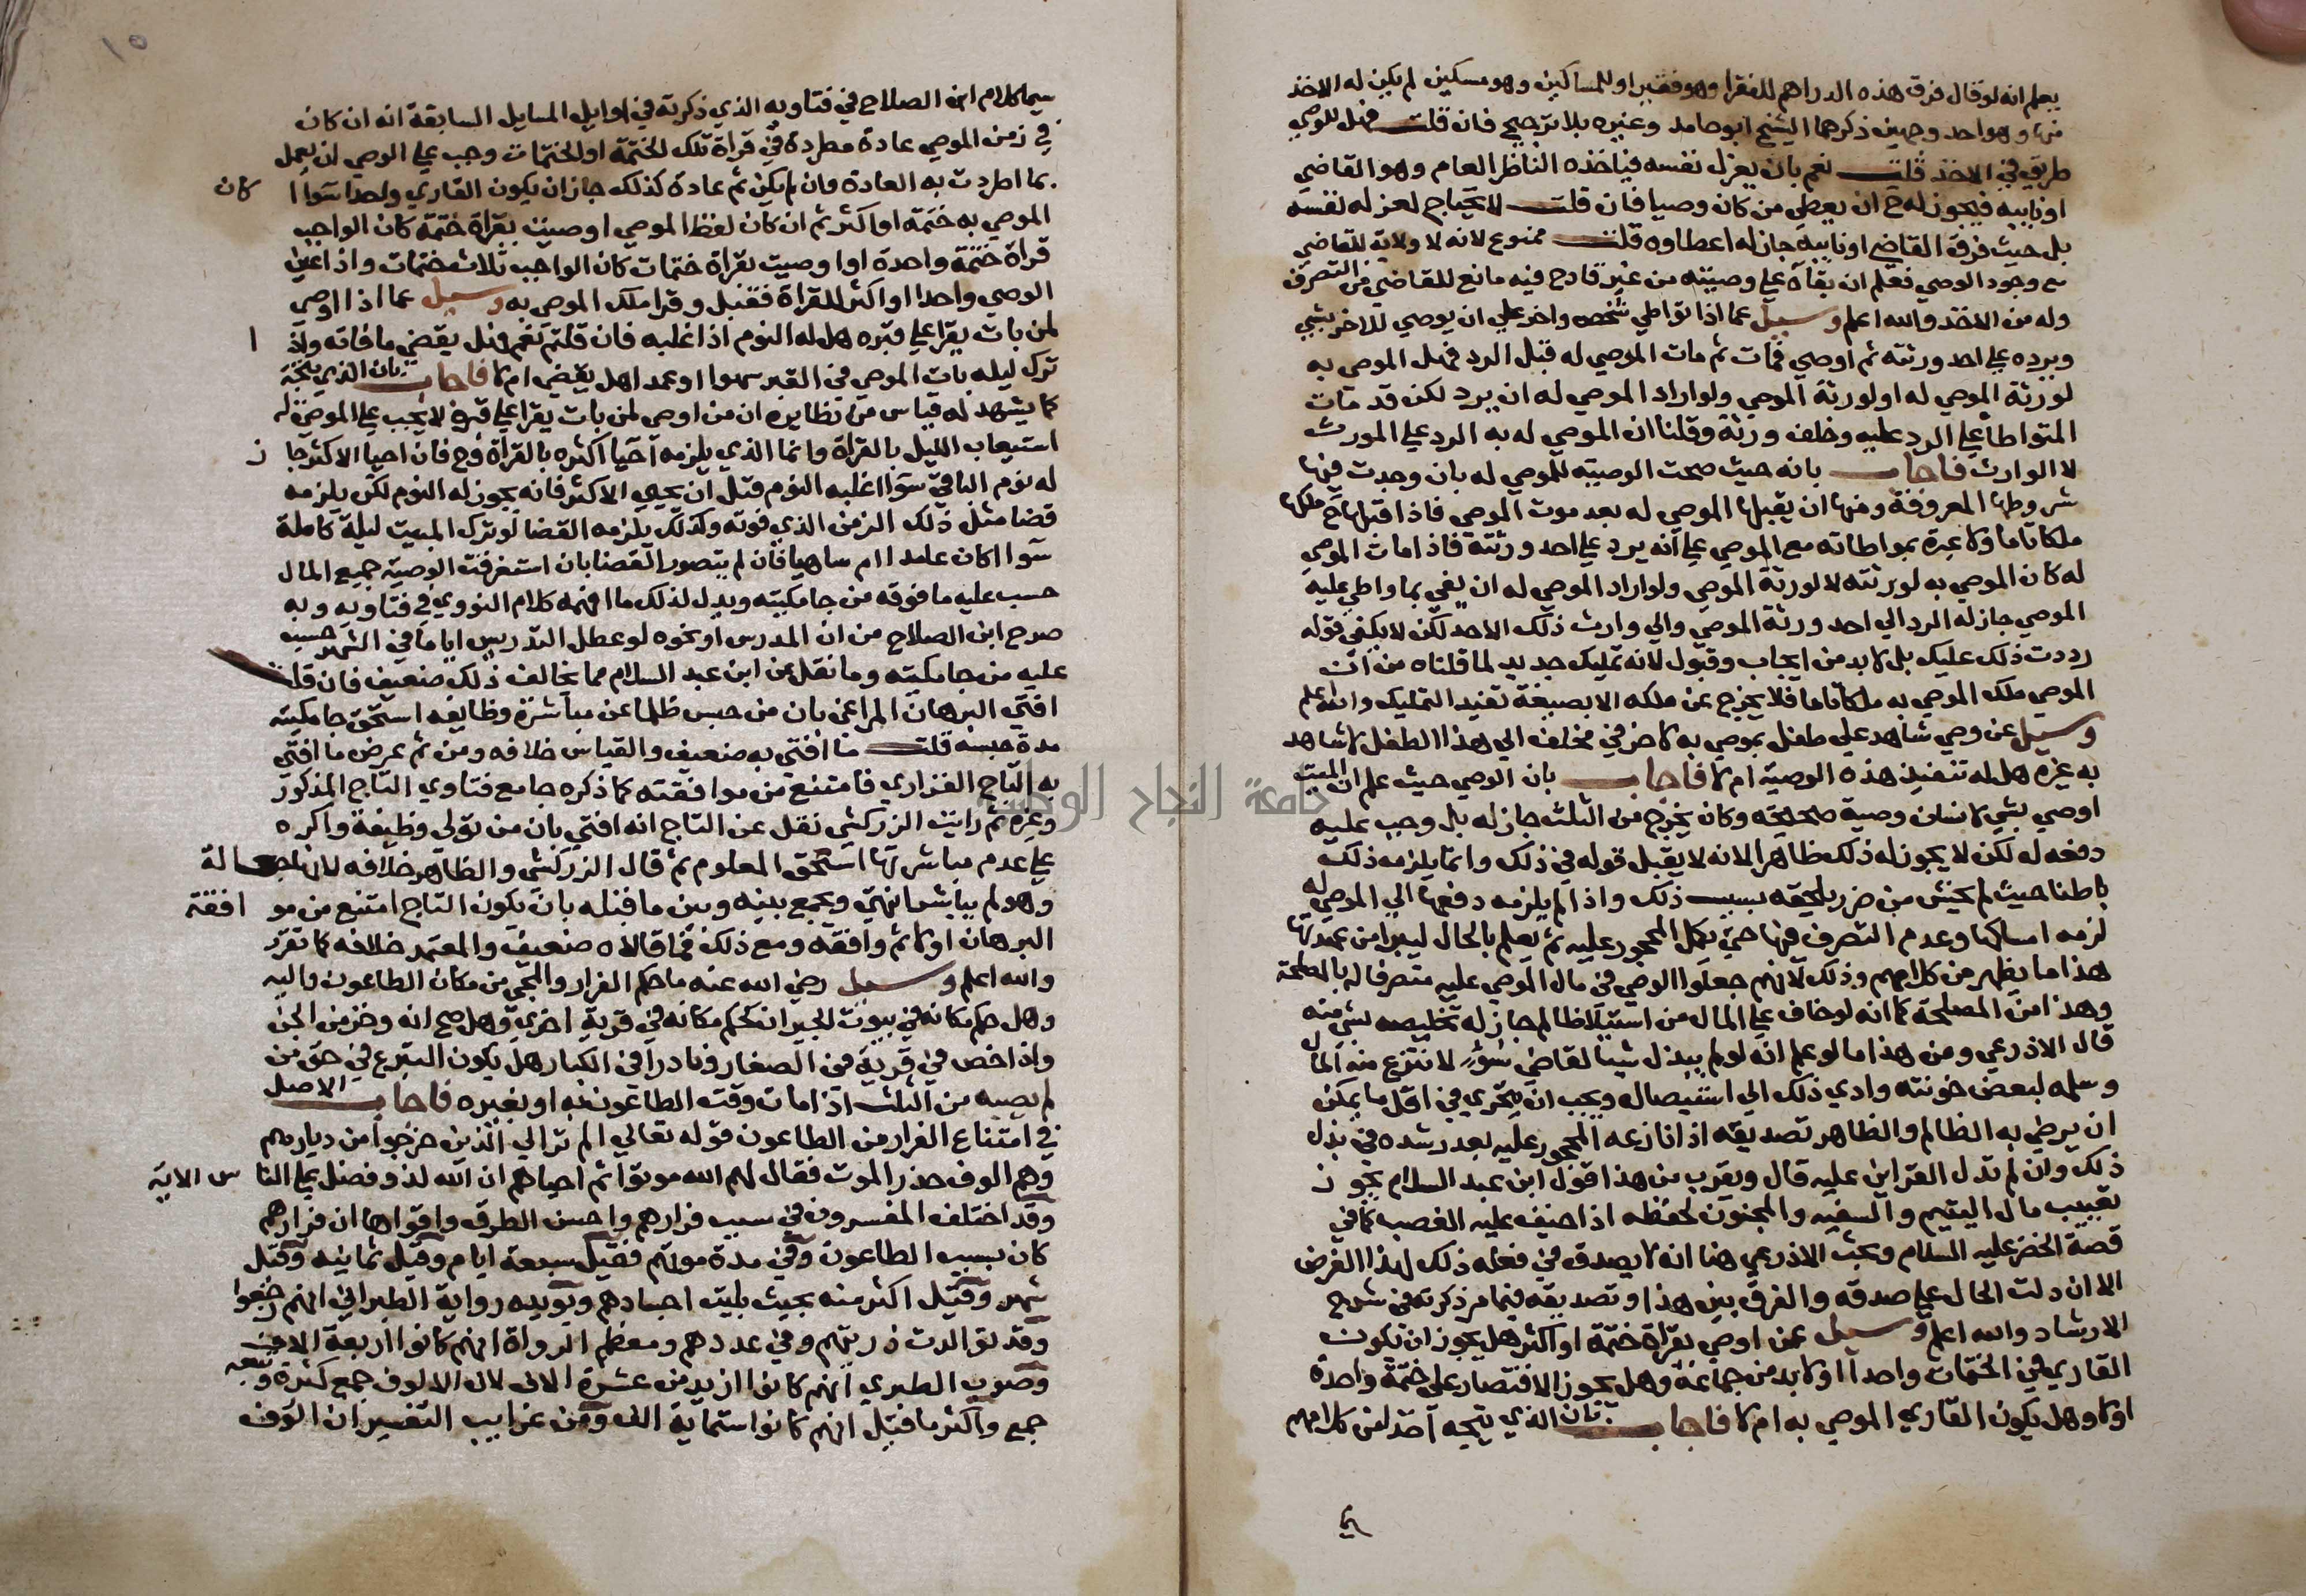 يعلم انه لو قال فرق هذه الدراهم للفقرا وهو فقير او للمساكين وهو مسكين لم يكن له الاخذ
منها وهو احد وجهين ذكرهما الشيخ ابو حامد وغيره بلا ترجيح فان قلت فهل للوصي
طريق في الاخذ قلت نعم بان يعزل نفسه فياخذه الناظر العام وهو القاضي
او نايبه فيجوز له ح ان يعطي من كان وصيا فان قلت لا يحتاج لعزله نفسه
بل حيث فرق القاضي او نايبه جاز له اعطاوه قلت ممنوع لانه لا ولاية للقاضي
مع وجود الوصي فعلم ان بقاه على وصيته من غير قادح فيه مانع للقاضي من التصرف
وله من الاخذ والله اعلم وسيل عما اذا تواطي شخص واخر على ان يوصي للاخر بشي
ويرده على احد ورثته ثم اوصي فمات ثم مات الموصي له قبل الرد فهل الموصي به
لورثة الموصي له او لورثة الموصي ولو اراد الموصي له ان يرد لكن قد مات
المتواطأ على الرد عليه وخلف ورثة وقلنا ان الموصي له به الرد على المورث
لا الوارث فاجاب بانه حيث صحت الوصية للموصي له بان وجدت فيها
شروطها المعروفة ومنها ان يقبلها الموصي له بعد موت الموصي فاذا قبلها ح ملكها
ملكا تاما ولا عبرة بمواطاته مع الموصي على انه يرد على احد ورثته فاذا مات الموصي
له كان الموصي به لورثته لا لورثة الموصي ولو اراد الموصي له ان يفي بما واطي عليه
الموصي جاز له الرد الي احد ورثة الموصي والي وارث ذلك الاحد لكن لا يكفي قوله
رددت ذلك عليك بل لا بد من ايجاب وقبول لانه تمليك جديد لما قلناه من ان
الموصي ملك الموصي به ملكا تاما فلا يخرج عن ملكه الا بصيغة تفيد التمليك والله اعلم
وسيل عن وصي شاهد على طفل بموصي به لاخر في مخلف الي هذا الطفل لا شاهد
به غيره هل له تنفيذ هذه الوصية ام لا فاجاب بان الوصي حيث علم ان الميت
اوصي بشي لانسان وصية صحيحة وكان يخرج من الثلث جاز له بل وجب عليه
دفعه له لكن لا يجوز له ذلك ظاهرا لانه لا يقبل قوله في ذلك وانما يلزمه ذلك
باطنا حيث لم يخش من ضرر يلحقه بسبب ذلك واذا لم يلزمه دفعها الي الموصي له
لزمه امساكها وعدم التصرف فيها حتي يكمل المحجور عليه ثم يعلم بالحال ليبرا من عهدتها
هذا ما يظهر من كلامهم وذلك لانهم جعلوا الوصي في مال الموصي عليه متصرفا له بالمصلحة
وهذا من المصلحة كما انه لو خاف على المال من استيلا ظالم جاز له تخليصه بشي منه
قال الاذرعي ومن هذا ما لو علم انه لو لم يبذل شيا لقاضي سوء لانتزع منه المال
وسلمه لبعض خونته وادي ذلك الي استيصاله ويجب ان يتحري في اقل ما يمكن
ان يرضي به الظالم والظاهر تصديقه اذا نازعه المحجور عليه بعد رشده في بذل
ذلك وان لم تدل القراين عليه قال ويقرب من هذا قول ابن عبد السلام يجوز
تعييب مال اليتيم والسفيه والمجنون لحفظه اذا خيف عليه الغصب كما في
قصة الخضر عليه السلام وبحث الاذرعي هنا انه لا يصدق في فعله ذلك لهذا الغرض
الا ان دلت الحال على صدقه والفرق بين هذا وتصديقه فيما مر ذكرته في شرح
الارشاد والله اعلم وسيل عمن اوصي بقراة ختمة او اكثر هل يجوز ان يكون
القاري في الختمات واحدا او لا بد من جماعة وهل يجوز الاقتصار على ختمة واحدة
او لا وهل يكون القاري الموصي به ام لا فاجاب بان الذي يتجه اخذا من كلامهم
سيما
سيما كلام ابن الصلاح في فتاويه الذي ذكرته في اوايل المسايل السابقة انه ان كان
في زمن الموصي عادة مطردة في قراة تلك الختمة او الختمات وجب على الوصي ان يعمل
بما اطردت به العادة وان لم يكن ثم عادة كذلك جاز ان يكون القاري واحدا سوا ا كان
الموصي به ختمة او اكثر ثم ان كان لفظ الموصي اوصيت بقراة ختمة كان الواجب
قراة ختمة واحدة او اوصيت بقراة ختمات كان الواجب ثلاث ختمات واذا عين
الوصي واحدا او اكثر للقراة فقبل وقرا ملك الموصي به وسيل عما اذا اوصي
لمن بات يقرا على قبره هل له النوم اذا غلبه فان قلتم نعم فهل يقضي ما فاته واذا
ترك ليله بات الموصي في القبر سهوا او عمدا هل يقضي ام لا فاجاب بان الذي يتجه
كما يشهد له قياس من نظايره ان من اوصي لمن بات يقرا على قبره لا يجب على الموصي له
استيعاب الليل بالقراة وانما الذي يلزمه احيا اكثره بالقراة وح فان احيا الاكثر جاز
له نوم الباقي سوا اغلبه النوم قبل ان يحيي الاكثر فانه يجوز له النوم لكن يلزمه
قضا مثل ذلك الزمن الذي فوته وكذلك يلزمه القضا لو ترك المبيت ليلة كاملة
سوا اكان عامدا ام ساهيا فان لم يتصور القضا بان استغرقت الوصية جميع المال
حسب عليه ما فوقه من جامكيته ويدل لذلك ما افهمه كلام النووي في فتاويه وبه
صرح ابن الصلاح من ان المدرس او نحوه لو عطل التدريس اياما في الشهر حسب
عليه من جامكيته وما نقل عن ابن عبد السلام مما يخالف ذلك ضعيف فان قلت
افتي البرهان المراغي بان من حبس ظلما عن مباشرة وظايفه استحق جامكيته
مدة حبسه قلت ما افتي به ضعيف والقياس خلافه ومن ثم عرض ما افتي
به التاج الفزاري فامتنع من موافقته كما ذكره جامع فتاوي التاج المذكور
وغيره ثم رايت الزركشي نقل عن التاج انه افتي بان من تولي وظيفة واكره
على عدم مباشرتها استحق المعلوم ثم قال الزركشي والظاهر خلافه لانها جعالة
وهو لم يباشر انتهي ويجمع بينه وبين ما قبله بان يكون التاج امتنع من موافقة
البرهان اولا ثم وافقه ومع ذلك فما قالاه ضعيف والمعتمد خلافه كما تقرر
والله اعلم وسيل رضي الله عنه ما حكم الفرار والمجي من مكان الطاعون واليه
وهل حكم مكانه في بيوت الجيران كحكم مكانه في قرية اخري وهل صح انه وخز من الجن
واذا خص في قرية في الصغار ونادرا في الكبار هل يكون التبرع في حق من
لم يصبه من الثلث اذا مات وقت الطاعون به او بغيره فاجاب الاصل
في امتناع الفرار من الطاعون قوله تعالي الم تر الي الذين خرجوا من ديارهم
وهم الوف حذر الموت فقال لهم الله موتوا ثم احياهم ان الله لذو فضل على الناس الاية
وقد اختلف المفسرون في سبب فرارهم واحسن الطرق واقواها ان فرارهم
كان بسبب الطاعون وفي مدة موتهم فقيل سبعة ايام وقيل ثمانية وقيل
شهر وقيل اكثر منه بحيث بليت اجسادهم ويويده رواية الطبراني انهم رجعوا
وقد توالدت ذريتهم وفي عددهم ومعظم الرواة انهم كانوا اربعة الاف
وصوب الطبري انهم كانوا ازيد من عشرة الاف لان الالوف جمع كثرة وتبعه
جمع واكثر ما قيل انهم كانوا ستماية الف ومن غرايب التفسير ان الوف
١٥
جامعة النجاح الوطنية